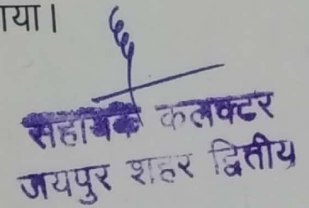 गया।
सहायक कलक्टर
जयपुर शहर द्वितीय